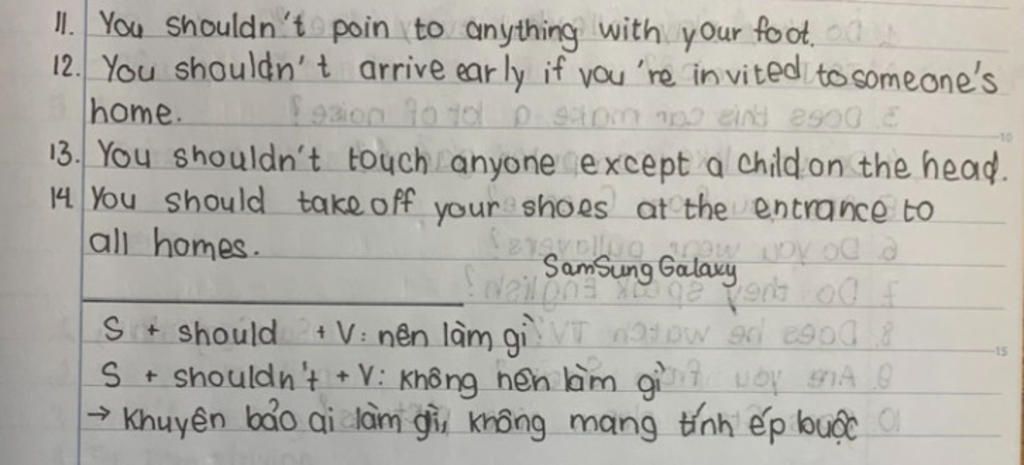 11. You shouldn't poin to anything with your foot.
12. You shouldn't arrive early if you're invited to someone's
home.
13. You shouldn't touch anyone except a child on the head.
14 You should take off your shoes at the entrance to
all homes.
SamSung Galaxy
S + should + V: nên làm gì
S + shouldn't + V: không nên làm gì
→ Khuyên bảo ai làm gì, không mang tính ép buộc
10
15